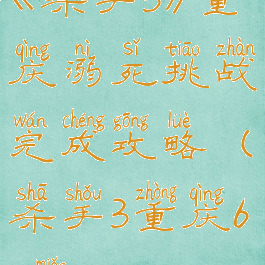 《杀手3》重
qìng nì sǐ tiāo zhàn
庆溺死挑战
wán chéng gōng lüè
完成攻略（
shā shǒu zhòng qìng
杀手3重庆6